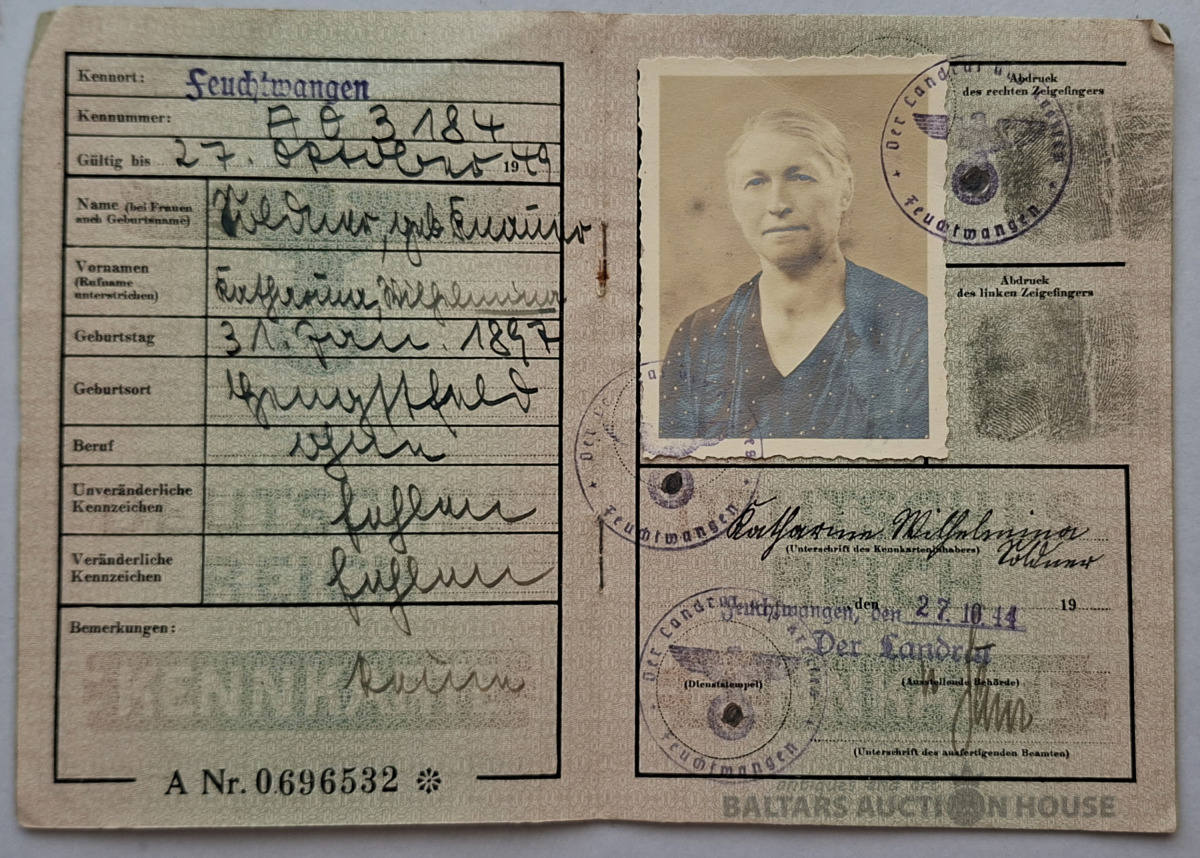 Kennort:
Feuchtwangen
Kennummer:
A 0 3184
Gültig bis 27. Oktober 1949
Name (bei Frauen
auch Geburtsname)
Soldner, geb. Knauer
Vornamen
(Rufname
unterstrichen)
Katharina, Wilhelmina
Geburtstag
31. Jan. 1897
Geburtsort
Hengstfeld
Beruf
ohne
Unveränderliche
Kennzeichen
fehlen
Veränderliche
Kennzeichen
fehlen
Bemerkungen:
keine
KENNKARTE
A Nr. 0696532
Der Landrat
Feuchtwangen
Abdruck
des rechten Zeigefingers
Abdruck
des linken Zeigefingers
Der Landrat
Feuchtwangen
Katharine Wilhelmina
Soldner
(Unterschrift des Kennkarteninhabers)
Feuchtwangen, den 27.10.44 19
den
Der Landrat
Der Landrat
Feuchtwangen
(Dienststempel)
(Ausstellende Behörde)
(Unterschrift des ausfertigenden Beamten)
antiques and art
BALTARS AUCTION HOUSE